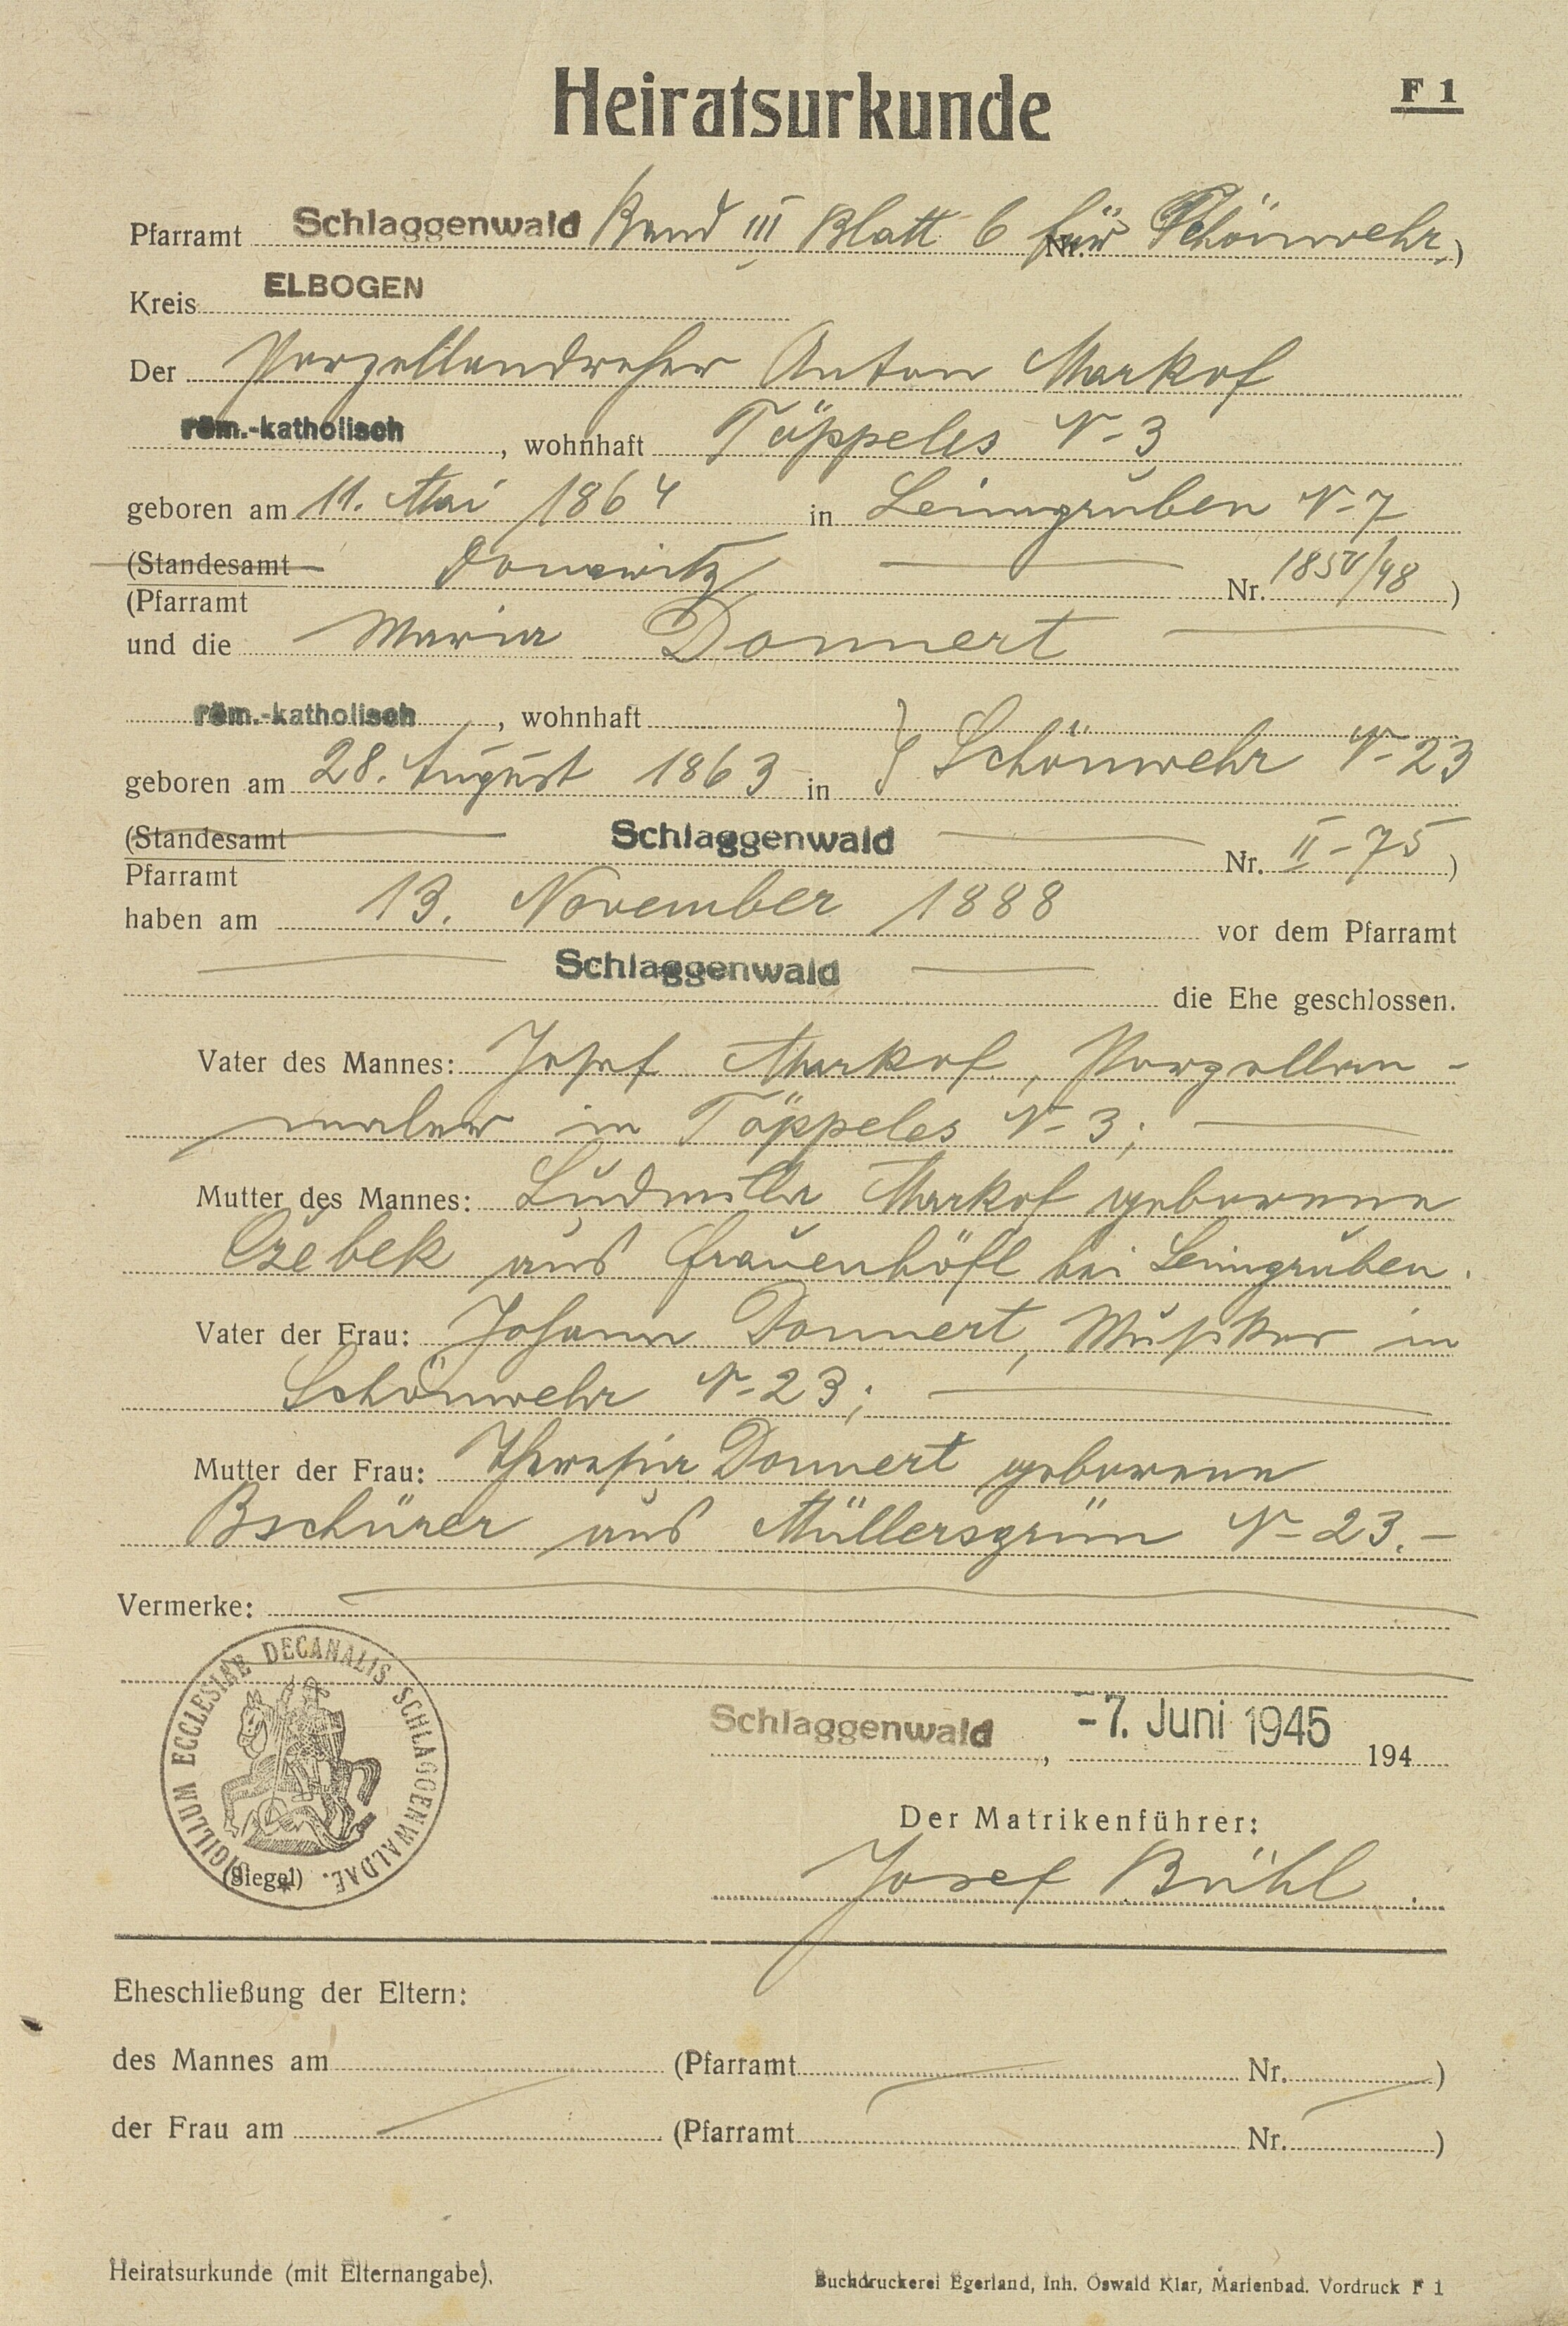 Heiratsurkunde
F 1
Pfarramt Schlaggenwald Band III Blatt 6 für Nr. Schönwehr.)
Kreis ELBOGEN
Der Porzellandreher Anton Markof
röm.-katholisch, wohnhaft Töppeles N- 3
geboren am 11. Mai 1864 in Leimgruben N- 7
(Standesamt Donawitz Nr. /48 )
(Pfarramt
und die Maria Donnert
röm.-katholisch, wohnhaft
geboren am 28. August 1863 in } Schönwehr N- 23
(Standesamt Schlaggenwald Nr. II-75 )
Pfarramt
haben am 13. November 1888 vor dem Pfarramt
Schlaggenwald
die Ehe geschlossen.
Vater des Mannes: Josef Markof, Porzellan-
maler in Töppeles N- 3;
Mutter des Mannes: Ludmilla Markof geborene
aus Frauenhöfl bei Leimgruben.
Vater der Frau: Johann Donnert, Musiker in
Schönwehr N- 23;
Mutter der Frau: Theresia Donnert geborene
Bschürer aus Müllersgrün N- 23.-
Vermerke:
SIGILLUM ECCLESIAE DECANALIS SCHLAGGENWALDAE.
(Siegel)
Schlaggenwald, -7. Juni 1945 194
Der Matrikenführer:
Josef Bühl
Eheschließung der Eltern:
des Mannes am (Pfarramt Nr. )
der Frau am (Pfarramt Nr. )
Heiratsurkunde (mit Elternangabe).
Buchdruckerei Egerland, Inh. Oswald Klar, Marienbad. Vordruck F 1